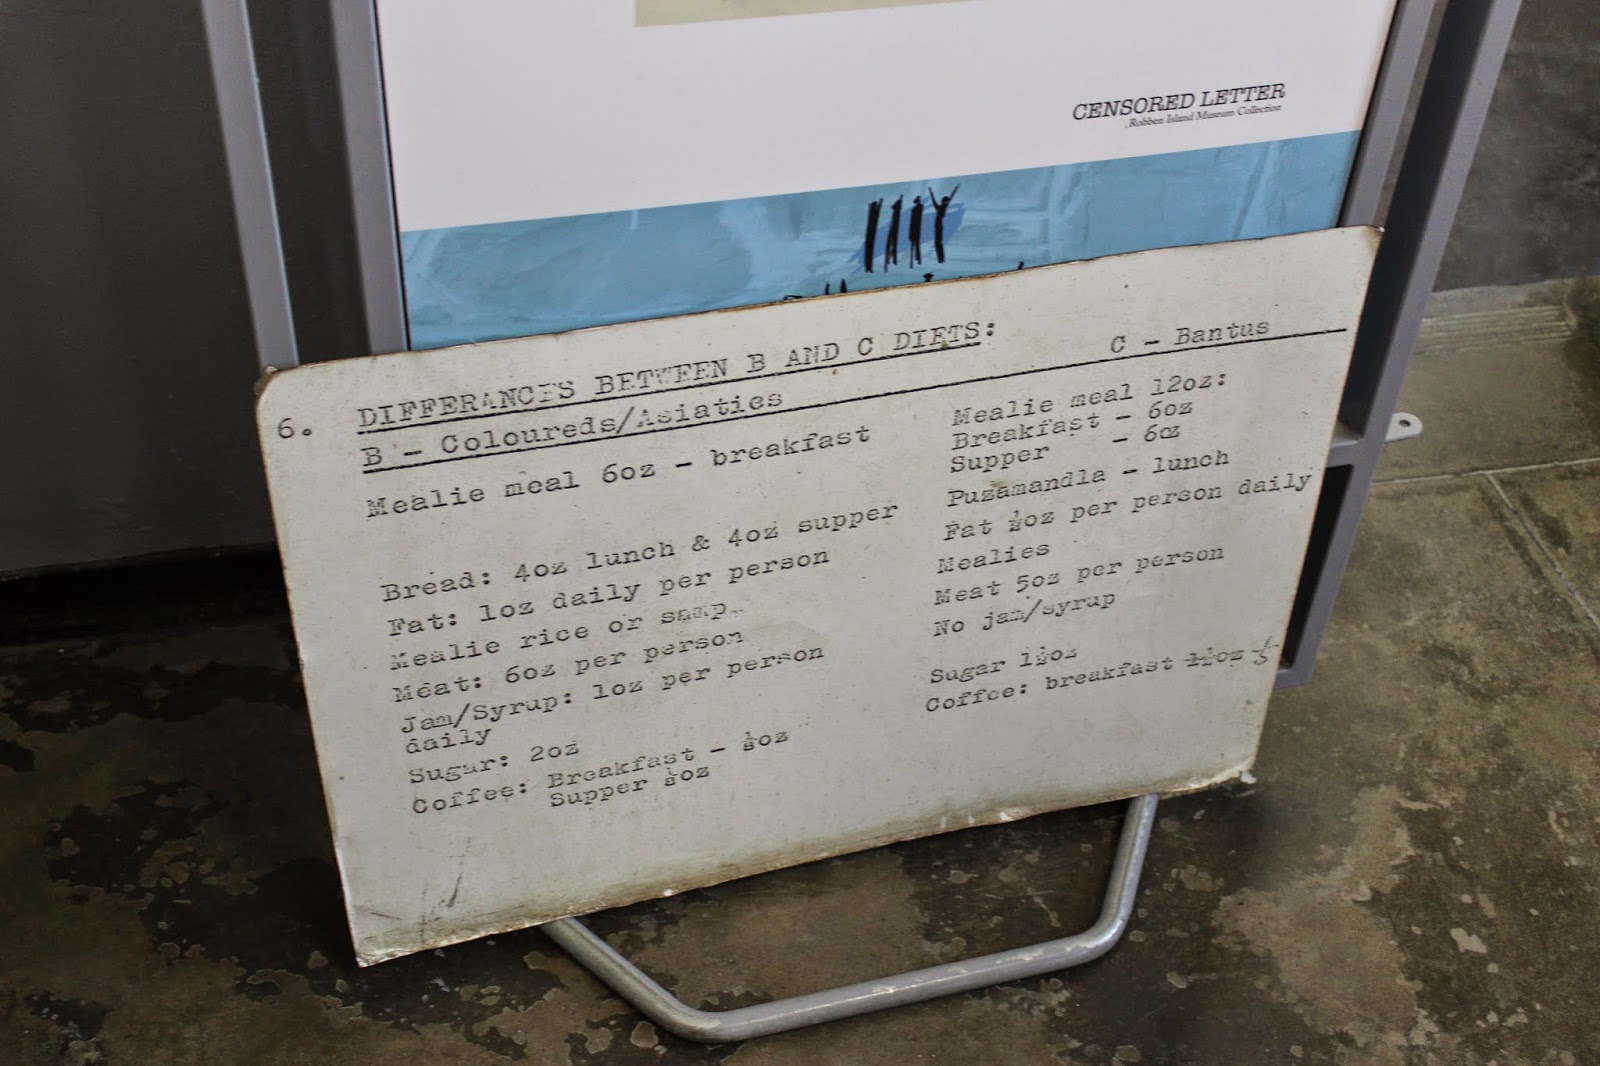 CENSORED LETTER
Robben Island Museum Collection
6. DIFFERANCES BETWEEN B AND C DIETS:
B - Coloureds/Asiaties
Mealie meal 6oz - breakfast
Bread: 4oz lunch & 4oz supper
Fat: 1oz daily per person
Mealie rice or samp
Meat: 6oz per person
Jam/Syrup: 1oz per person
daily
Sugar: 2oz
Coffee: Breakfast - ¼oz
Supper ¼oz
C - Bantus
Mealie meal 12oz:
Breakfast - 6oz
Supper - 6oz
Puzamandla - lunch
Fat ½oz per person daily
Mealies
Meat 5oz per person
No jam/syrup
Sugar 1½oz
Coffee: breakfast